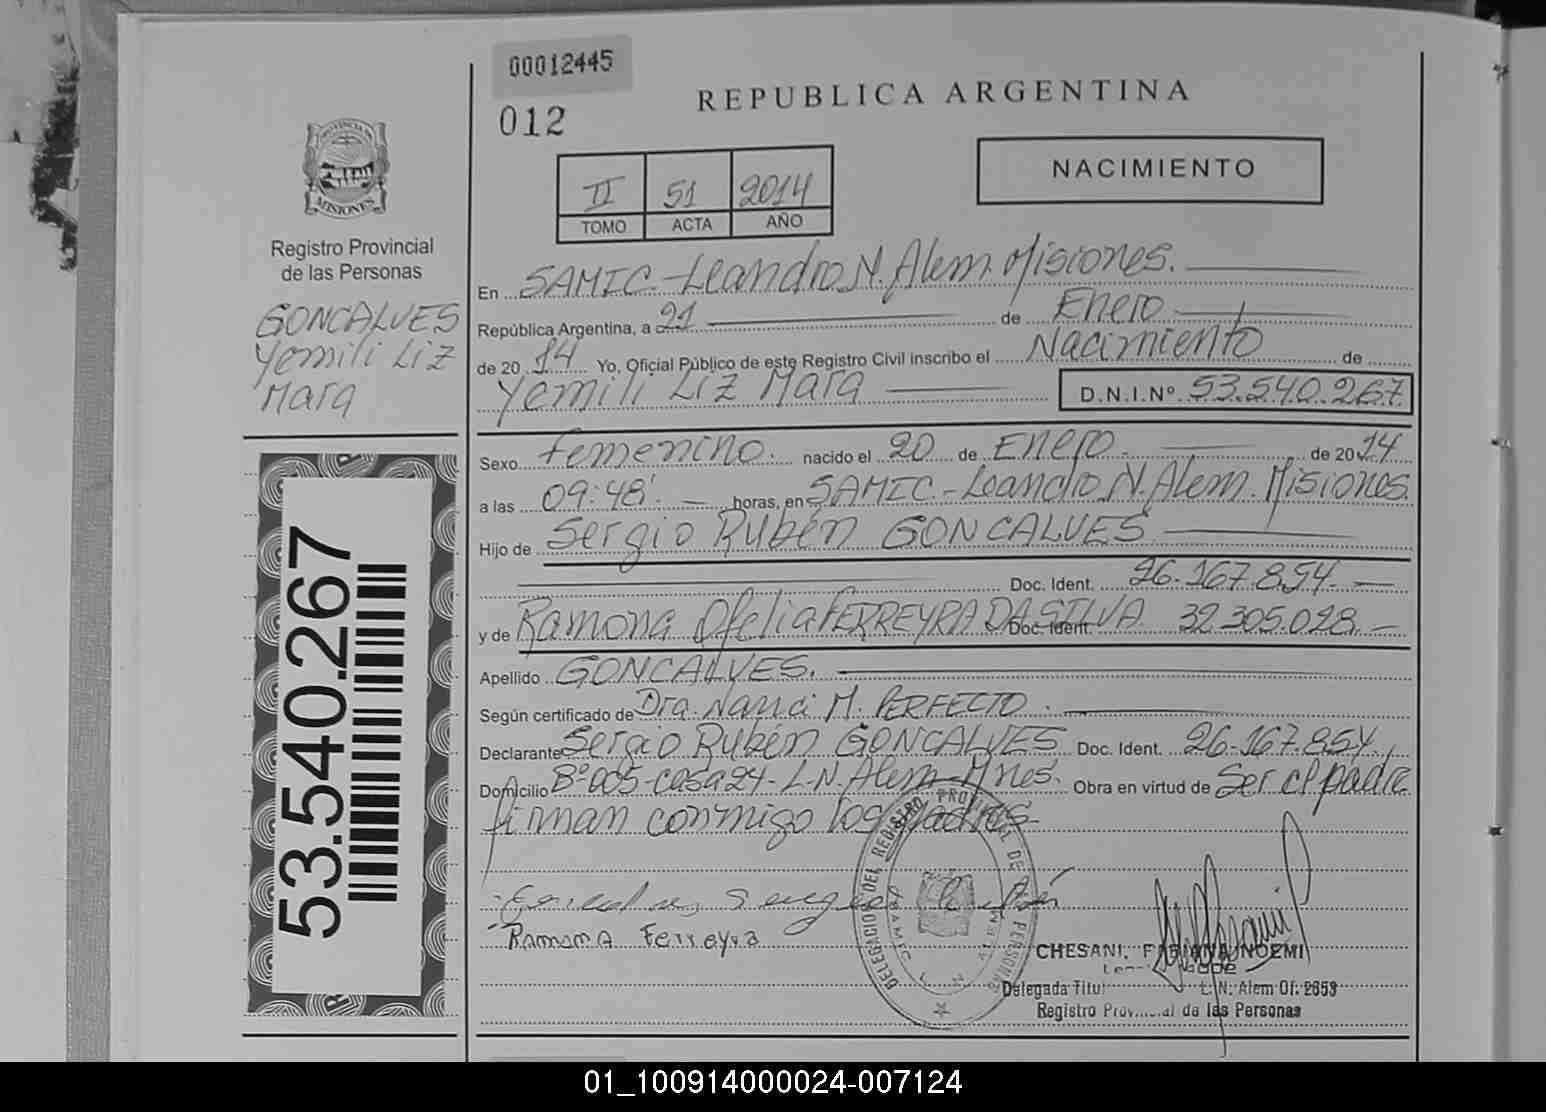 00012445
012
REPUBLICA ARGENTINA
NACIMIENTO
II 51 2014
TOMO ACTA AÑO
PROVINCIA DE
MISIONES
Registro Provincial
de las Personas
GONCALVES
Yemili Liz
Mara
53.540.267
En SAMIC - Leandro N. Alem. Misiones.
República Argentina, a 21 de Enero
de 2014 Yo, Oficial Público de este Registro Civil inscribo el Nacimiento de
Yemili Liz Mara D.N.I.Nº 53.540.267
Sexo Femenino. nacido el 20 de Enero. de 2014
a las 09:48'. horas, en SAMIC. - Leandro N. Alem. Misiones.
Hijo de Sergio Rubén GONCALVES
Doc. Ident. 26.167.854.
y de Ramona Ofelia FERREYRA DA SILVA Doc. Ident. 32.305.028.
Apellido GONCALVES.
Según certificado de Dra. M. PERFECTO.
Declarante Sergio Rubén GONCALVES Doc. Ident. 26.167.854.
Domicilio Bº 005 - casa 24 - L.N. Alem - Mnes. Obra en virtud de Ser el padre
firman conmigo los padres
Ramona Ferreyra
DELEGACION DEL REGISTRO PROVINCIAL DE PERSONAS
CHESANI, FABIANA NOEMI
Delegada Titul L. N. Alem Of. 2653
Registro Provincial de las Personas
01_100914000024-007124